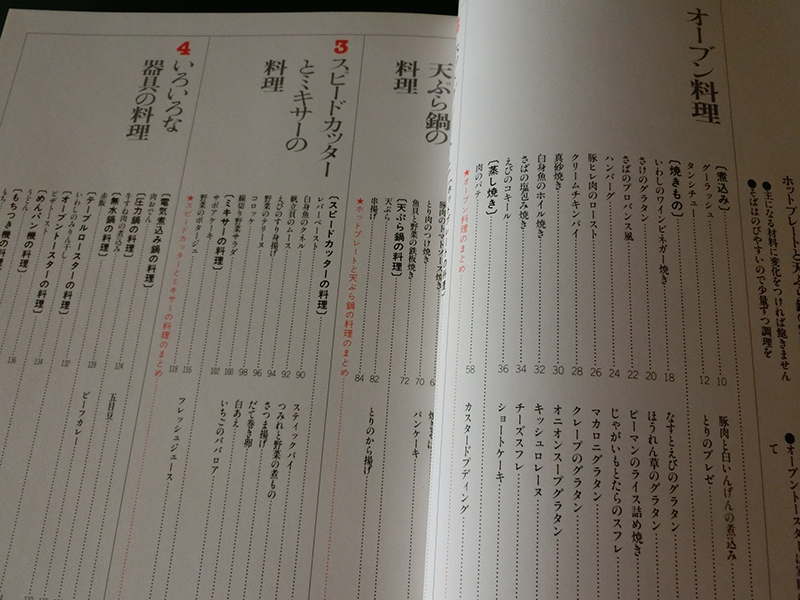 ホットプレートと天ぷら鍋の
●主になる材料に変化をつければ飽きません
●そばはのびやすいので少量ずつ調理を
●オーブントースター
て
オーブン料理
〔煮込み〕
グーラッシュ 10
タンシチュー 12
〔焼きもの〕
いわしのワインビネガー焼き 18
さけのグラタン 20
さばのプロバンス風 22
ハンバーグ 24
豚ヒレ肉のロースト 26
クリームチキンパイ 28
真砂焼き 30
白身魚のホイル焼き 32
さばの塩包み焼き 34
えびのコキール 36
〔蒸し焼き〕
肉のパテ 58
★オーブン料理のまとめ
豚肉と白いんげんの煮込み
とりのブレゼ
なすとえびのグラタン
ほうれん草のグラタン
ピーマンのライス詰め焼き
じゃがいもとたらのスフレ
マカロニグラタン
クレープのグラタン
オニオンスープグラタン
キッシュロレーヌ
チーズスフレ
ショートケーキ
カスタードプディング
天ぷら鍋の
料理
豚肉のトマトソース焼き
とり肉のつけ焼き
魚貝と野菜の鉄板焼き 70
〔天ぷら鍋の料理〕 72
天ぷら
串揚げ 82
★ホットプレートと天ぷら鍋の料理のまとめ 84
パンケーキ
とりのから揚げ
3 スピードカッター
とミキサーの
料理
〔スピードカッターの料理〕
レバーペースト 90
白身魚のクネル 92
帆立貝のムース 94
えびのすり身揚げ 96
野菜のテリーヌ 98
コロッケ
線切り野菜サラダ 100
〔ミキサーの料理〕
サボアケーキ 102
野菜のポタージュ 116
★スピードカッターとミキサーの料理のまとめ 118
スティックパイ
つみれと野菜の煮もの
さつま揚げ
だて巻き卵
白あえ
いちごのババロア
フレッシュジュース
4 いろいろな
器具の料理
〔電気煮込み鍋の料理〕
肉おでん
〔圧力鍋の料理〕
牛すね肉の煮込み 124
〔無水鍋の料理〕
赤飯 128
〔テーブルロースターの料理〕
いわしのみりん干し 132
〔オーブントースターの料理〕
ピザトースト 134
〔めんパン機の料理〕
うどん 136
〔もちつき機の料理〕
もち
五目豆
ビーフカレー